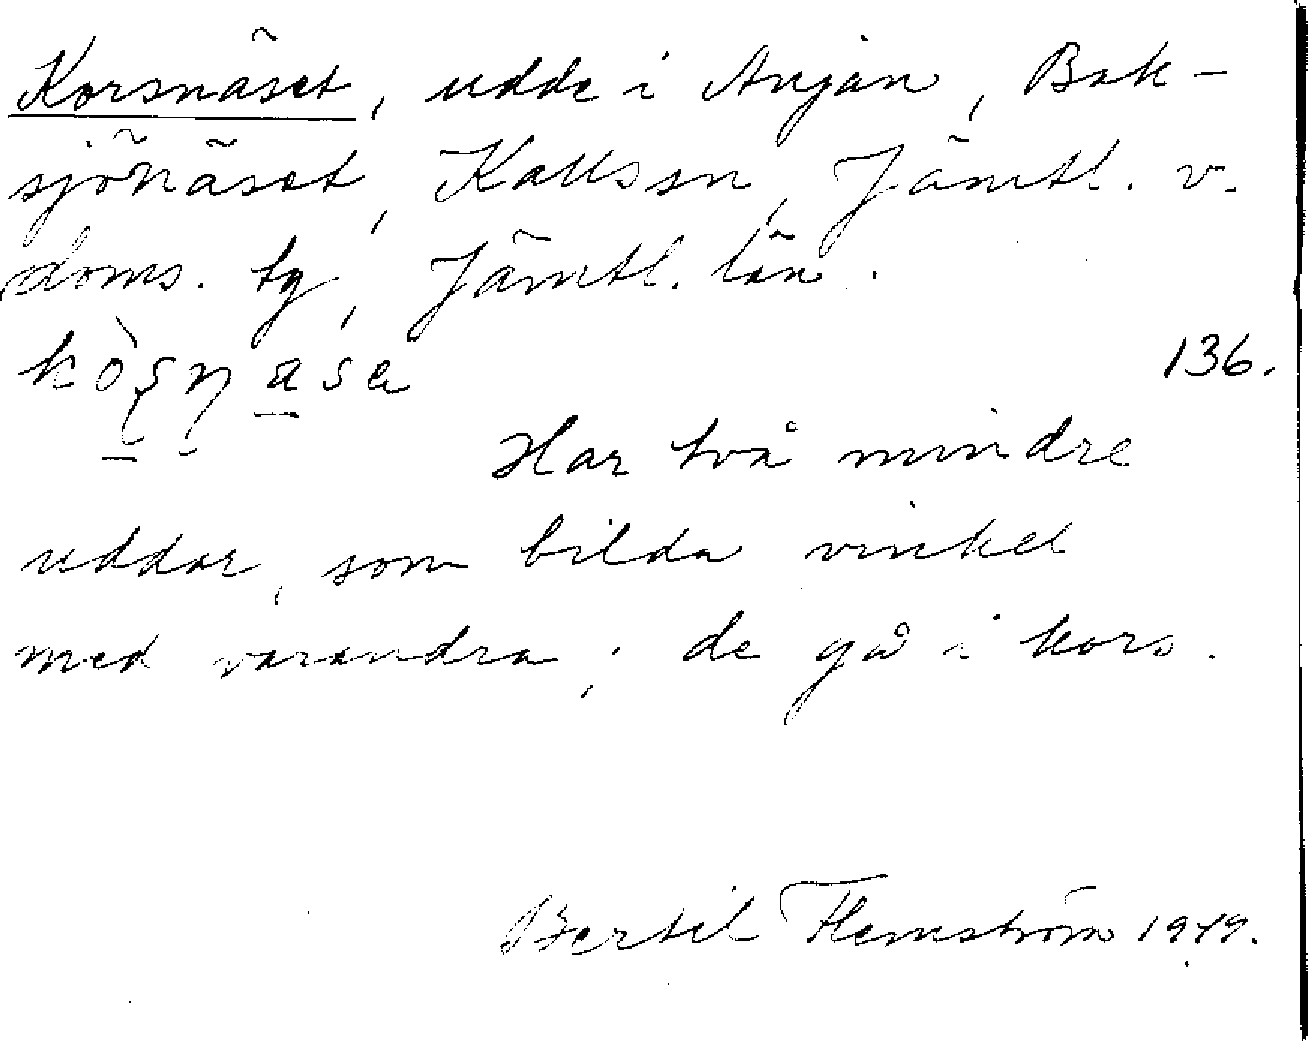 Korsnäset, udde i Anjan, Bak-
sjönäset, Kallssn, Jämtl. v.
doms. tg, Jämtl. län.
136.
Har två mindre
uddar, som bilda vinkel
med varandra; de gå i kors.
Bertil Flemström 1949.